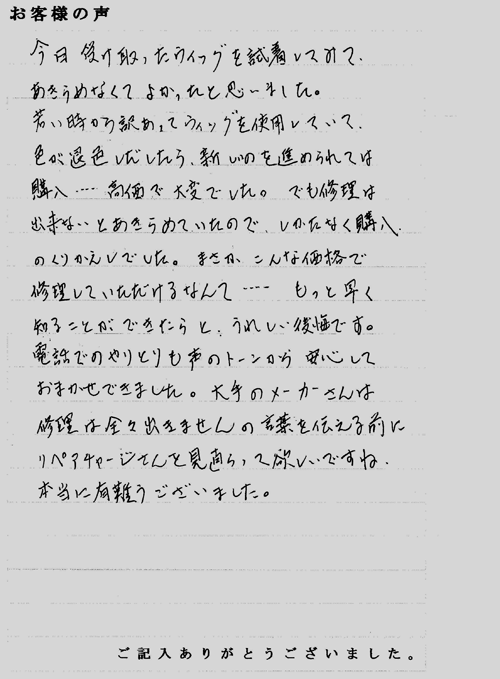 お客様の声
今日受け取ったウィッグを試着してみて、
あきらめなくてよかったと思いました。
若い時から訳あってウィッグを使用していて、
色が退色しだしたら、新しいのを進められては
購入…… 高価で大変でした。でも修理は
出来ないとあきらめていたので、しかたなく購入、
のくりかえしでした。まさか、こんな価格で
修理していただけるなんて…… もっと早く
知ることができたらと、うれしい後悔です。
電話でのやりとりも声のトーンから安心して
おまかせできました。大手のメーカーさんは
修理は全々出来ませんの言葉を伝える前に
リペアチャージさんを見習って欲しいですね。
本当に有難うございました。
ご記入ありがとうございました。